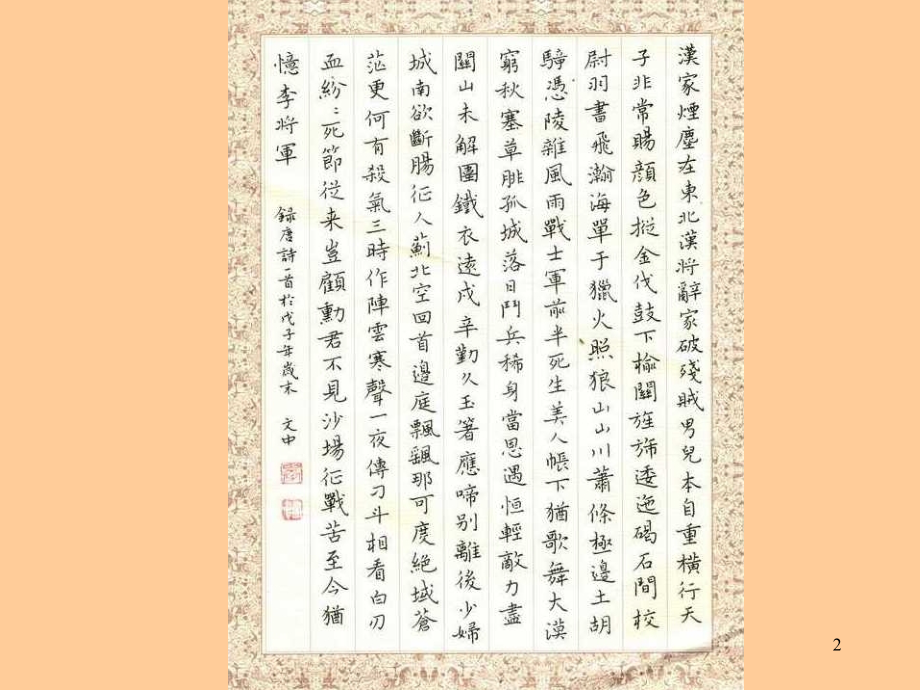 漢家煙塵在東北漢將辭家破殘賊男兒本自重橫行天
子非常賜顏色摐金伐鼓下榆關旌旆逶迤碣石間校
尉羽書飛瀚海單于獵火照狼山山川蕭條極邊土胡
騎憑陵雜風雨戰士軍前半死生美人帳下猶歌舞大漠
窮秋塞草腓孤城落日鬥兵稀身當恩遇恒輕敵力盡
關山未解圍鐵衣遠戍辛勤久玉箸應啼別離後少婦
城南欲斷腸征人薊北空回首邊庭飄颻那可度絕域蒼
茫更何有殺氣三時作陣雲寒聲一夜傳刁斗相看白刃
血紛〻死節從来豈顧勳君不見沙場征戰苦至今猶
憶李將軍 錄唐詩一首於戊子年歲末 文中
2